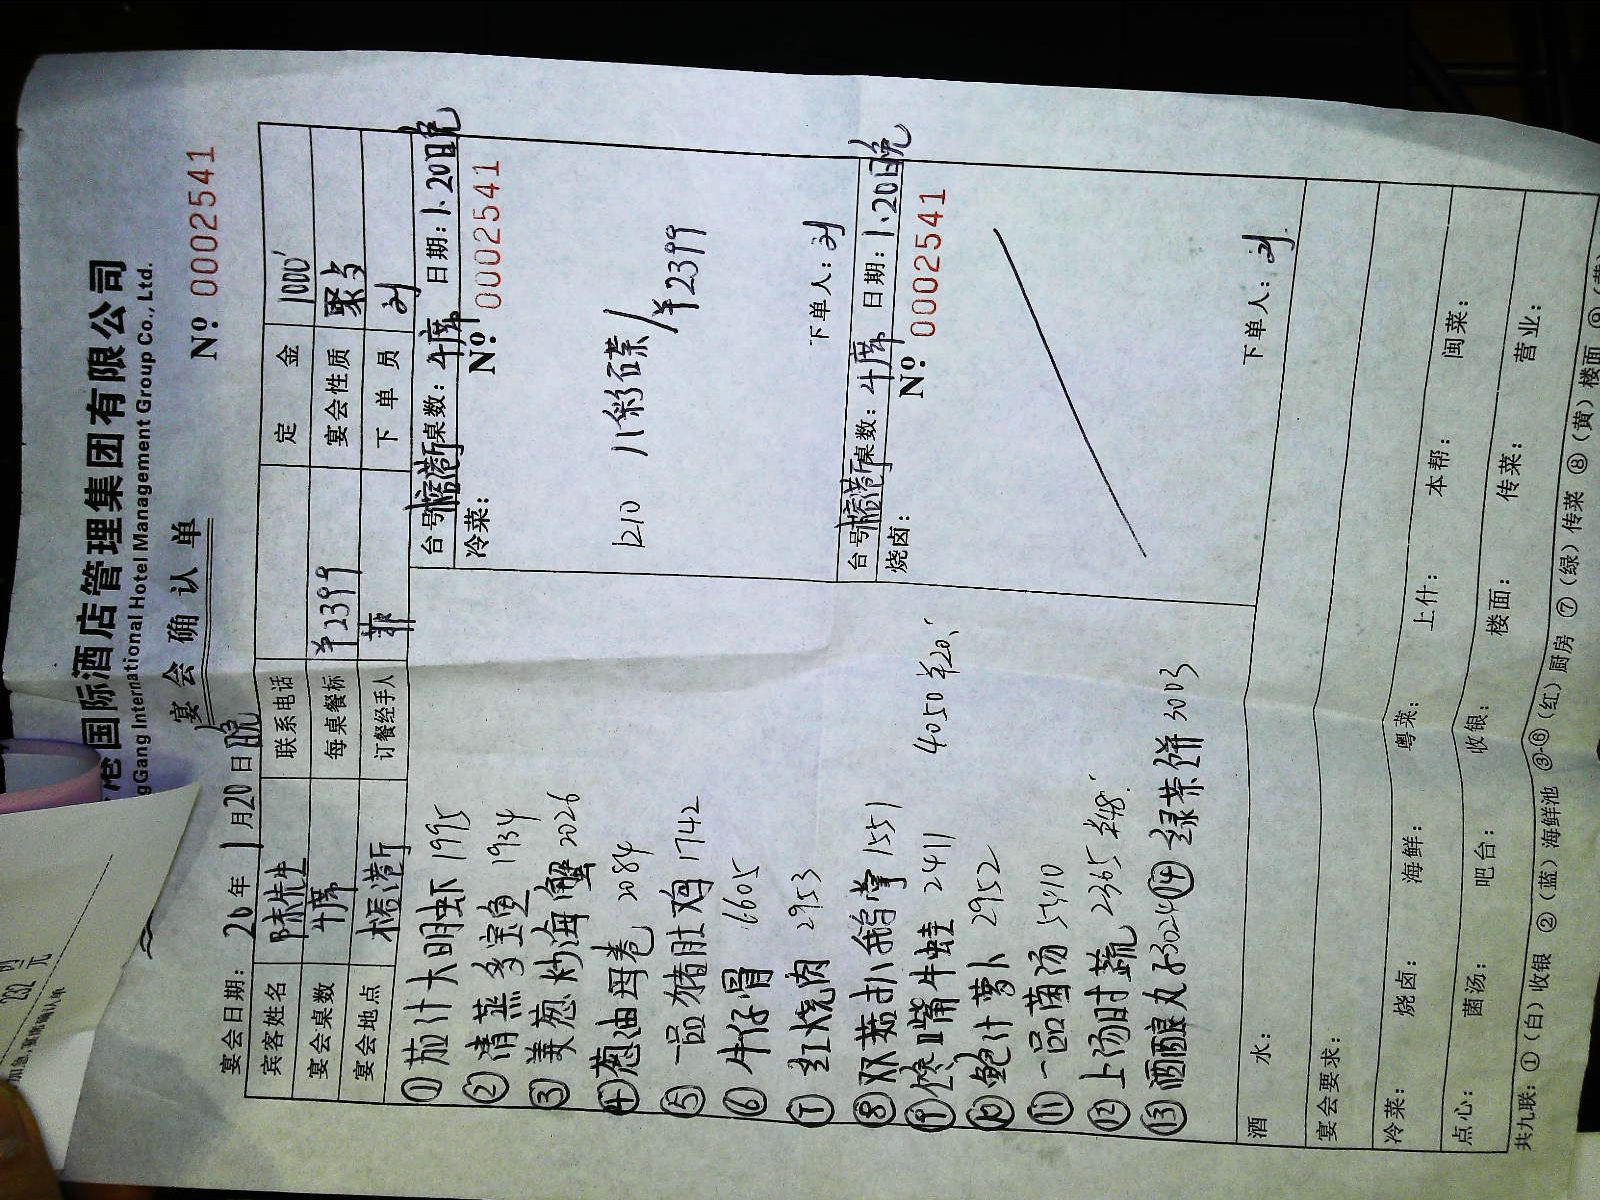 港国际酒店管理集团有限公司
gGang International Hotel Management Group Co., Ltd.
宴会确认单
Nº 0002541
宴会日期: 20年1月20日晚
宾客姓名 陈先生 联系电话 定金 1000
宴会桌数 4席 每桌餐标 ¥2399 宴会性质 聚与
宴会地点 榕港厅 订餐经手人 菲 下单员 刘
①茄汁大明虾 1995
②清蒸多宝鱼 1934
③姜葱炒海蟹 2026
④葱油毋卷 2084
⑤一品猪肚鸡 1742
⑥牛仔骨 6605
⑦红烧肉 2953
⑧双菇扒鹅掌 1551
⑨馋嘴牛蛙 2411 4050 ¥20.
⑩鲍汁萝卜 2952
⑪一品菌汤 5410
⑫上汤时蔬 2365 ¥48.
⑬酒酿丸子3024 ⑭绿茶饼 3003
台号:榕港厅 桌数:4席 日期:1.20日晚
冷菜: Nº 0002541
1210 八彩碟/¥2399
下单人:刘
台号:榕港厅 桌数:4席 日期:1.20日晚
烧卤: Nº 0002541
下单人:刘
酒水:
宴会要求:
冷菜: 烧卤: 海鲜: 粤菜: 上什: 本帮: 闽菜:
点心: 菌汤: 吧台: 收银: 楼面: 传菜: 营业:
共九联:①(白)收银 ②(蓝)海鲜池 ③-⑥(红)厨房 ⑦(绿)传菜 ⑧(黄)楼面 ⑨(黄)
232
元